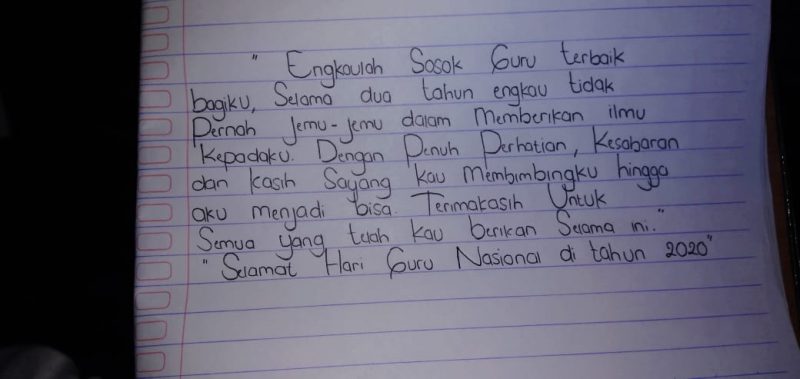 " Engkaulah Sosok Guru terbaik
bagiku, Selama dua tahun engkau tidak
Pernah jemu-jemu dalam Memberikan ilmu
Kepadaku. Dengan Penuh Perhatian, Kesabaran
dan Kasih Sayang kau Membimbingku hingga
aku menjadi bisa. Terimakasih Untuk
Semua yang telah kau berikan Selama ini."
" Selamat Hari Guru Nasional di tahun 2020"